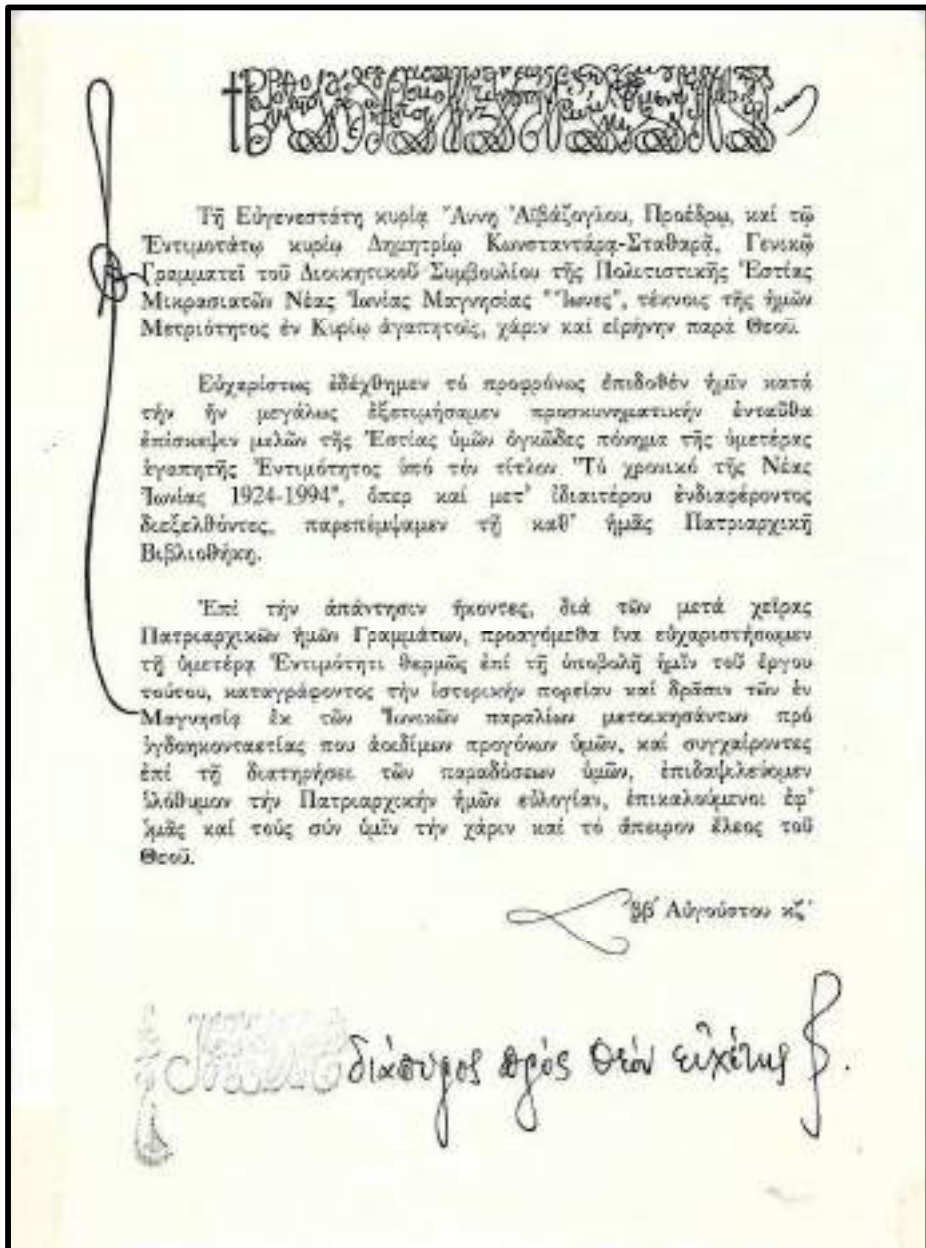 Τῇ Εὐγενεστάτῃ κυρίᾳ Ἄννῃ Ἀϊβάζογλου, Προέδρῳ, καί τῷ
Ἐντιμοτάτῳ κυρίῳ Δημητρίῳ Κωνσταντάρᾳ-Σταθαρᾷ, Γενικῷ
Γραμματεῖ τοῦ Διοικητικοῦ Συμβουλίου τῆς Πολιτιστικῆς Ἑστίας
Μικρασιατῶν Νέας Ἰωνίας Μαγνησίας "Ἴωνες", τέκνοις τῆς ἡμῶν
Μετριότητος ἐν Κυρίῳ ἀγαπητοῖς, χάριν καί εἰρήνην παρά Θεοῦ.
Εὐχαρίστως ἐδέχθημεν τό προφρόνως ἐπιδοθέν ἡμῖν κατά
τήν ἥν μεγάλως ἐξετιμήσαμεν προσκυνηματικήν ἐνταῦθα
ἐπίσκεψιν μελῶν τῆς Ἑστίας ὑμῶν ὀγκῶδες πόνημα τῆς ὑμετέρας
ἀγαπητῆς Ἐντιμότητος ὑπό τόν τίτλον "Τό χρονικό τῆς Νέας
Ἰωνίας 1924-1994", ὅπερ καί μετ' ἰδιαιτέρου ἐνδιαφέροντος
διεξελθόντες, παρεπέμψαμεν τῇ καθ' ἡμᾶς Πατριαρχικῇ
Βιβλιοθήκῃ.
Ἐπί τήν ἀπάντησιν ἥκοντες, διά τῶν μετά χεῖρας
Πατριαρχικῶν ἡμῶν Γραμμάτων, προαγόμεθα ἵνα εὐχαριστήσωμεν
τῇ ὑμετέρᾳ Ἐντιμότητι θερμῶς ἐπί τῇ ὑποβολῇ ἡμῖν τοῦ ἔργου
τούτου, καταγράφοντος τήν ἱστορικήν πορείαν καί δρᾶσιν τῶν ἐν
Μαγνησίᾳ ἐκ τῶν Ἰωνικῶν παραλίων μετοικησάντων πρό
ὀγδοηκονταετίας που ἀοιδίμων προγόνων ὑμῶν, καί συγχαίροντες
ἐπί τῇ διατηρήσει τῶν παραδόσεων ὑμῶν, ἐπιδαψιλεύομεν
ὁλόθυμον τήν Πατριαρχικήν ἡμῶν εὐλογίαν, ἐπικαλούμενοι ἐφ'
ὑμᾶς καί τούς σύν ὑμῖν τήν χάριν καί τό ἄπειρον ἔλεος τοῦ
Θεοῦ.
͵ββ΄ Αὐγούστου κζ΄
διάπυρος πρός Θεόν εὐχέτης